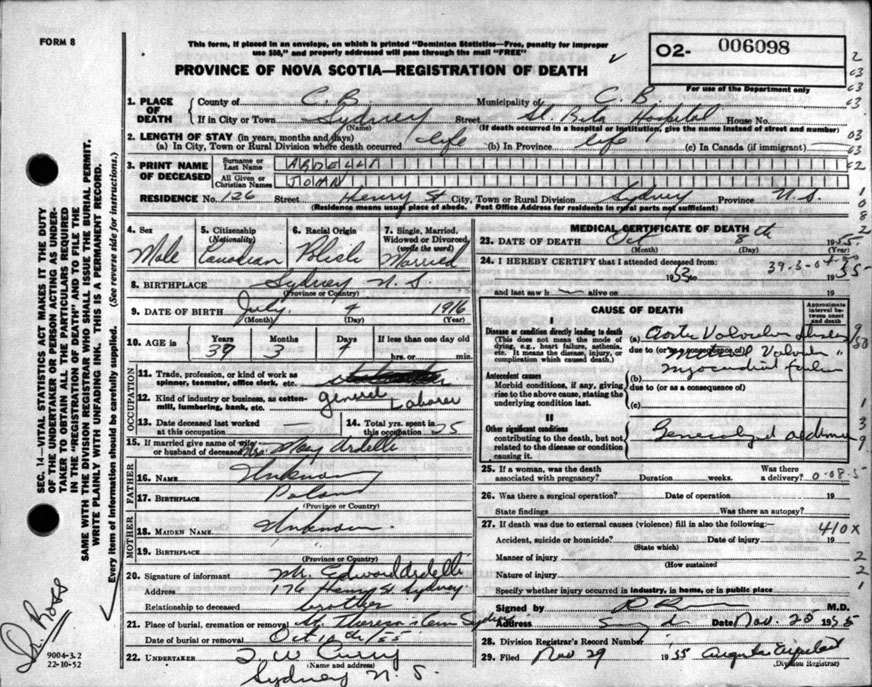 FORM 8
This form, if placed in an envelope, on which is printed "Dominion Statistics—Free, penalty for improper
use $50," and properly addressed will pass through the mail "FREE"
O2- 006098
PROVINCE OF NOVA SCOTIA—REGISTRATION OF DEATH
For use of the Department only
1. PLACE OF DEATH County of C.B. Municipality of C.B.
If in City or Town Sydney Street St. Rita Hospital House No.
(Name) (If death occurred in a hospital or institution, give the name instead of street and number)
2. LENGTH OF STAY (in years, months and days)
(a) In City, Town or Rural Division where death occurred life (b) In Province life (c) In Canada (if immigrant)
3. PRINT NAME OF DECEASED Surname or Last Name ARDELLA
All Given or Christian Names JOHN
RESIDENCE No. 126 Street Henry St City, Town or Rural Division Sydney Province N.S.
(Residence means usual place of abode. Post Office Address for residents in rural parts not sufficient)
4. Sex 5. Citizenship (Nationality) 6. Racial Origin 7. Single, Married, Widowed or Divorced (write the word)
Male Canadian Polish Married
8. BIRTHPLACE Sydney N.S.
(Province or Country)
9. DATE OF BIRTH July 4 1916
(Month) (Day) (Year)
10. AGE in Years Months Days If less than one day
39 3 4 hrs. or min.
OCCUPATION
11. Trade, profession, or kind of work as spinner, teamster, office clerk, etc.
12. Kind of industry or business, as cotton-mill, lumbering, bank, etc. general Laborer
13. Date deceased last worked at this occupation —
14. Total yrs. spent in this occupation 25
15. If married give name of wife or husband of deceased Mrs. May Ardelli
FATHER
16. NAME Unknown
17. BIRTHPLACE Poland
(Province or Country)
MOTHER
18. MAIDEN NAME Unknown
19. BIRTHPLACE
(Province or Country)
20. Signature of informant Mr. Edward Ardelli
Address 176 Henry St. Sydney
Relationship to deceased brother
21. Place of burial, cremation or removal St. Theresa's Cem Sydney
Date of burial or removal Oct 10th/55
22. UNDERTAKER T. W. Curry
(Name and address)
Sydney N.S.
MEDICAL CERTIFICATE OF DEATH
23. DATE OF DEATH Oct 8th 1955
(Month) (Day) (Year)
24. I HEREBY CERTIFY that I attended deceased from:
39-3-04
1953 to 55
and last saw h alive on 19
CAUSE OF DEATH
Approximate interval between onset and death
I
Disease or condition directly leading to death
(This does not mean the mode of dying, e.g., heart failure, asthenia, etc. It means the disease, injury, or complication which caused death.)
(a) Aortic Valvular
due to (or as a consequence of) Valvular
Antecedent causes
Morbid conditions, if any, giving rise to the above cause, stating the underlying condition last.
(b) myocardial failure
due to (or as a consequence of)
(c)
II
Other significant conditions
contributing to the death, but not related to the disease or condition causing it.
Generalized oedema
25. If a woman, was the death associated with pregnancy? Duration weeks. Was there a delivery? 0-08-5
26. Was there a surgical operation? Date of operation. 19
State findings Was there an autopsy?
27. If death was due to external causes (violence) fill in also the following:— 410X
Accident, suicide or homicide? Date of injury. 19
(State which)
Manner of injury
(How sustained
Nature of injury
Specify whether injury occurred in industry, in home, or in public place
Signed by M.D.
Address Date Nov. 25 1955
28. Division Registrar's Record Number
29. Filed Nov 29 1955
(Division Registrar)
SEC. 14—VITAL STATISTICS ACT MAKES IT THE DUTY
OF THE UNDERTAKER OR PERSON ACTING AS UNDER-
TAKER TO OBTAIN ALL THE PARTICULARS REQUIRED
IN THE "REGISTRATION OF DEATH" AND TO FILE THE
SAME WITH THE DIVISION REGISTRAR WHO SHALL ISSUE THE BURIAL PERMIT.
WRITE PLAINLY WITH UNFADING INK. THIS IS A PERMANENT RECORD.
Every item of information should be carefully supplied. (See reverse side for instructions.)
Dr. Ross
9004-3.2
22-10-52